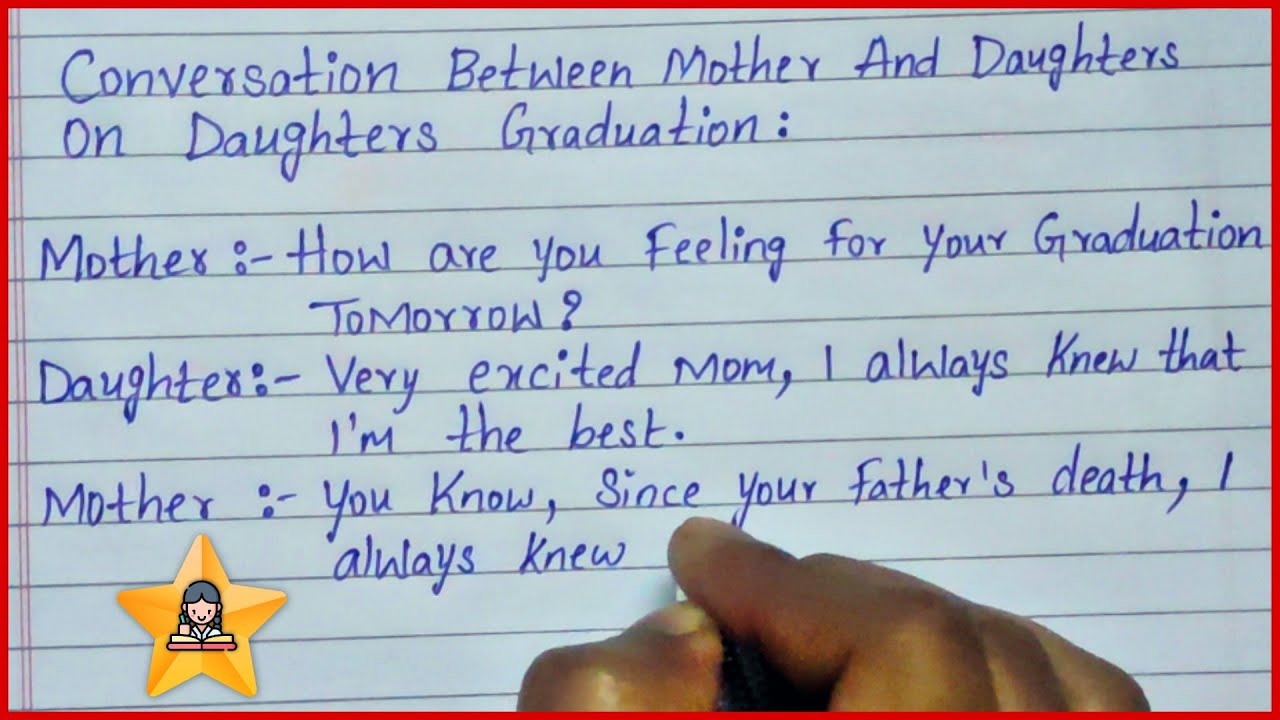 Conversation Between Mother And Daughters
On Daughters Graduation:
Mother :- How are you Feeling for your Graduation
Tomorrow?
Daughter:- Very excited Mom, I always Knew that
I'm the best.
Mother :- You Know, Since your Father's death, I
always Knew